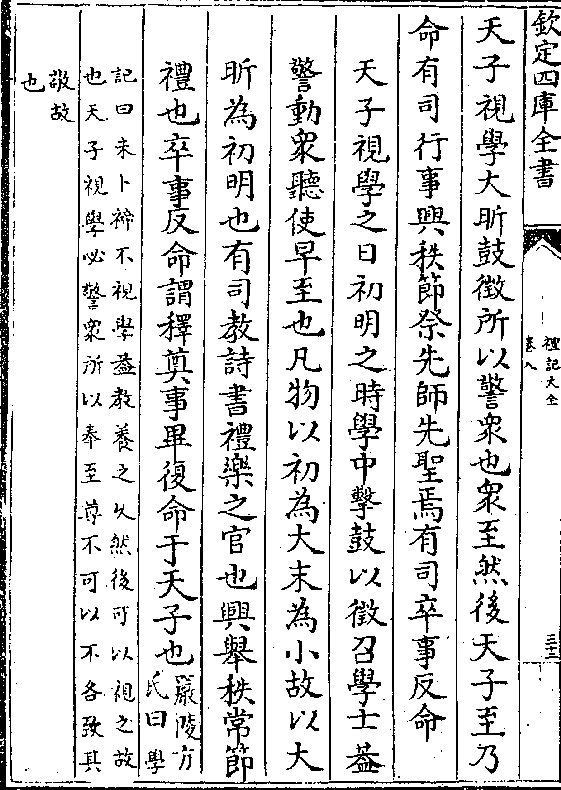 欽定四庫全書
禮記大全
卷八
三十二
天子視學大昕鼓徵所以警衆也衆至然後天子至乃
命有司行事興秩節祭先師先聖焉有司卒事反命
天子視學之日初明之時學中擊鼓以徵召學士葢
警動衆聽使早至也凡物以初為大末為小故以大
昕為初明也有司教詩書禮樂之官也興舉秩常節
禮也卒事反命謂釋奠事畢復命于天子也
嚴陵方
氏曰學
記曰未卜禘不視學葢教養之久然後可以視之故
也天子視學必警衆所以奉至尊不可以不各致其
敬故
也